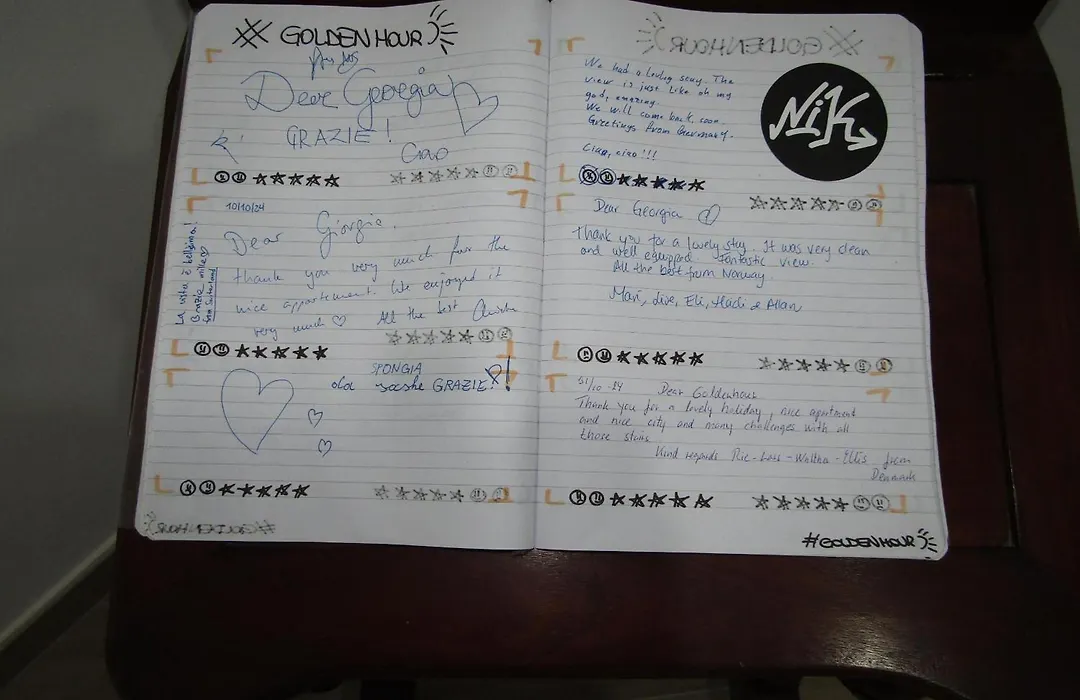 # GOLDENHOUR
Dear Georgia
GRAZIE!
Ciao
10/10/24
Dear Giorgia,
thank you very much for the
nice appartement. We enjoyed it
very much ♡ All the best
La vista è bellissima!
Grazie mille ♡
from Switzerland
SPONGIA
GRAZIE!
#GOLDENHOUR
#GOLDENHOUR
We had a lovley stay. The
view is just like oh my
god, amazing.
We will come back soon.
Greetings from Germany.
Ciao, ciao!!!
NiK
Dear Georgia
Thank you for a lovely stay. It was very clean
and well equipped. Fantastic view.
All the best from Norway.
Mari, Live, Eli, & Allan
Dear Goldenhour
Thank you for a lovely holiday, nice apartment
and nice city and many challenges with all
those stairs
Kind regards from
Denmark
#GOLDENHOUR